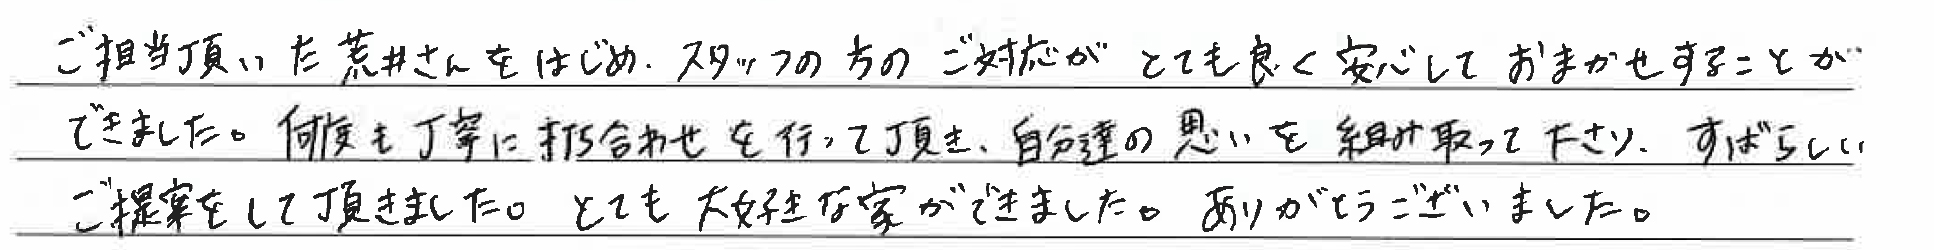 ご担当頂いた荒井さんをはじめ、スタッフの方のご対応がとても良く安心しておまかせすることが
できました。何度も丁寧に打ち合わせを行って頂き、自分達の思いを組み取って下さり、すばらしい
ご提案をして頂きました。とても大好きな家ができました。ありがとうございました。